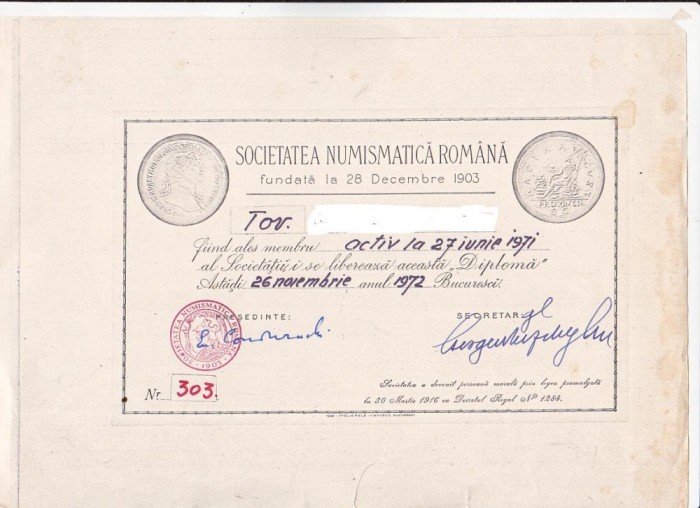 SOCIETATEA NUMISMATICĂ ROMÂNĂ
fundată la 28 Decembre 1903
Tov.
fiind ales membru activ la 27 iunie 1971
al Societăţii i se liberează această „Diplomă"
Astăḑi 26 noiembrie anul 1972 Bucuresci.
PRESEDINTE:
SECRETAR gl
SOCIETATEA NUMISMATICA ROMANA
1903
Nr 303.
Societatea a devenit persoană morală prin legea promulgată
la 30 Martie 1916 cu Decretul Regal Nº 1284.